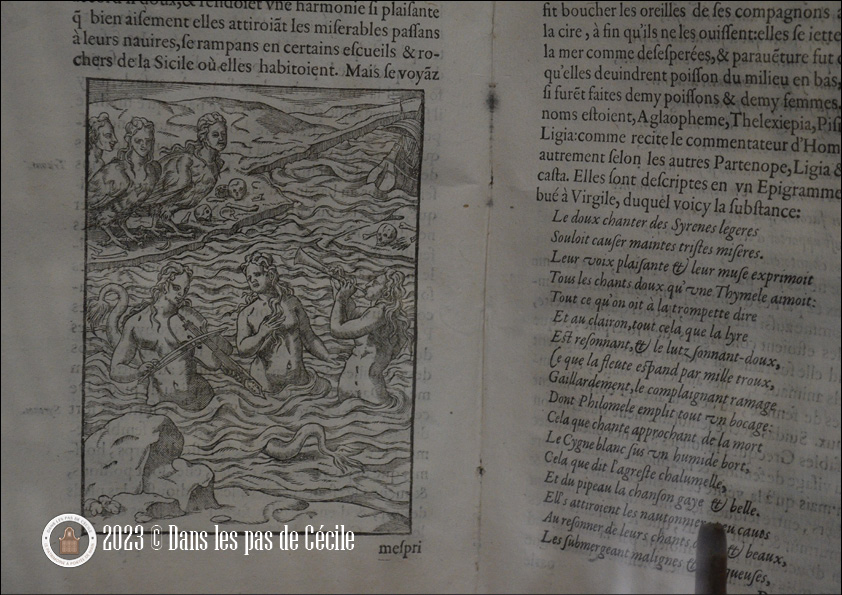 & rendoiēt vne harmonie ſi plaiſante
q̃ bien aiſement elles attiroiãt les miſerables paſſans
à leurs nauires,ſe rampans en certains eſcueils & ro-
chers de la Sicile où elles habitoient. Mais ſe voyãz
meſpri
fit boucher les oreilles de ſes compagnons a
la cire, à fin qu'ils ne les ouiſſent:elles ſe iette
la mer comme deſeſperées,& parauẽture fut c
qu'elles deuindrent poiſſon du milieu en bas,
ſi furẽt faites demy poiſſons & demy femmes.
noms eſtoient,Aglaopheme,Thelexiepia,Piſi
Ligia:comme recite le commentateur d'Hom
autrement ſelon les autres Partenope,Ligia &
caſta. Elles ſont deſcriptes en vn Epigramme
bué à Virgile, duquel voicy la ſubſtance:
Le doux chanter des Syrenes legeres
Souloit cauſer maintes triſtes miſeres.
Leur voix plaiſante & leur muſe exprimoit
Tous les chants doux qu'vne Thymele aimoit:
Tout ce qu'on oit à la trompette dire
Et au clairon,tout cela que la lyre
Eſt reſonnant,& le lutz ſonnant-doux,
Ce que la fleute eſpand par mille troux,
Gaillardement,le complaignant ramage
Dont Philomele emplit tout vn bocage:
Cela que chante approchant de la mort
Le Cygne blanc ſus vn humide bort,
Cela que dit l'agreſte chalumelle,
Et du pipeau la chanſon gaye & belle.
Ell's attiroient les nautonniers cauts
Au reſonner de leurs chants & beaux,
Les ſubmergeant malignes &
2023 © Dans les pas de Cécile